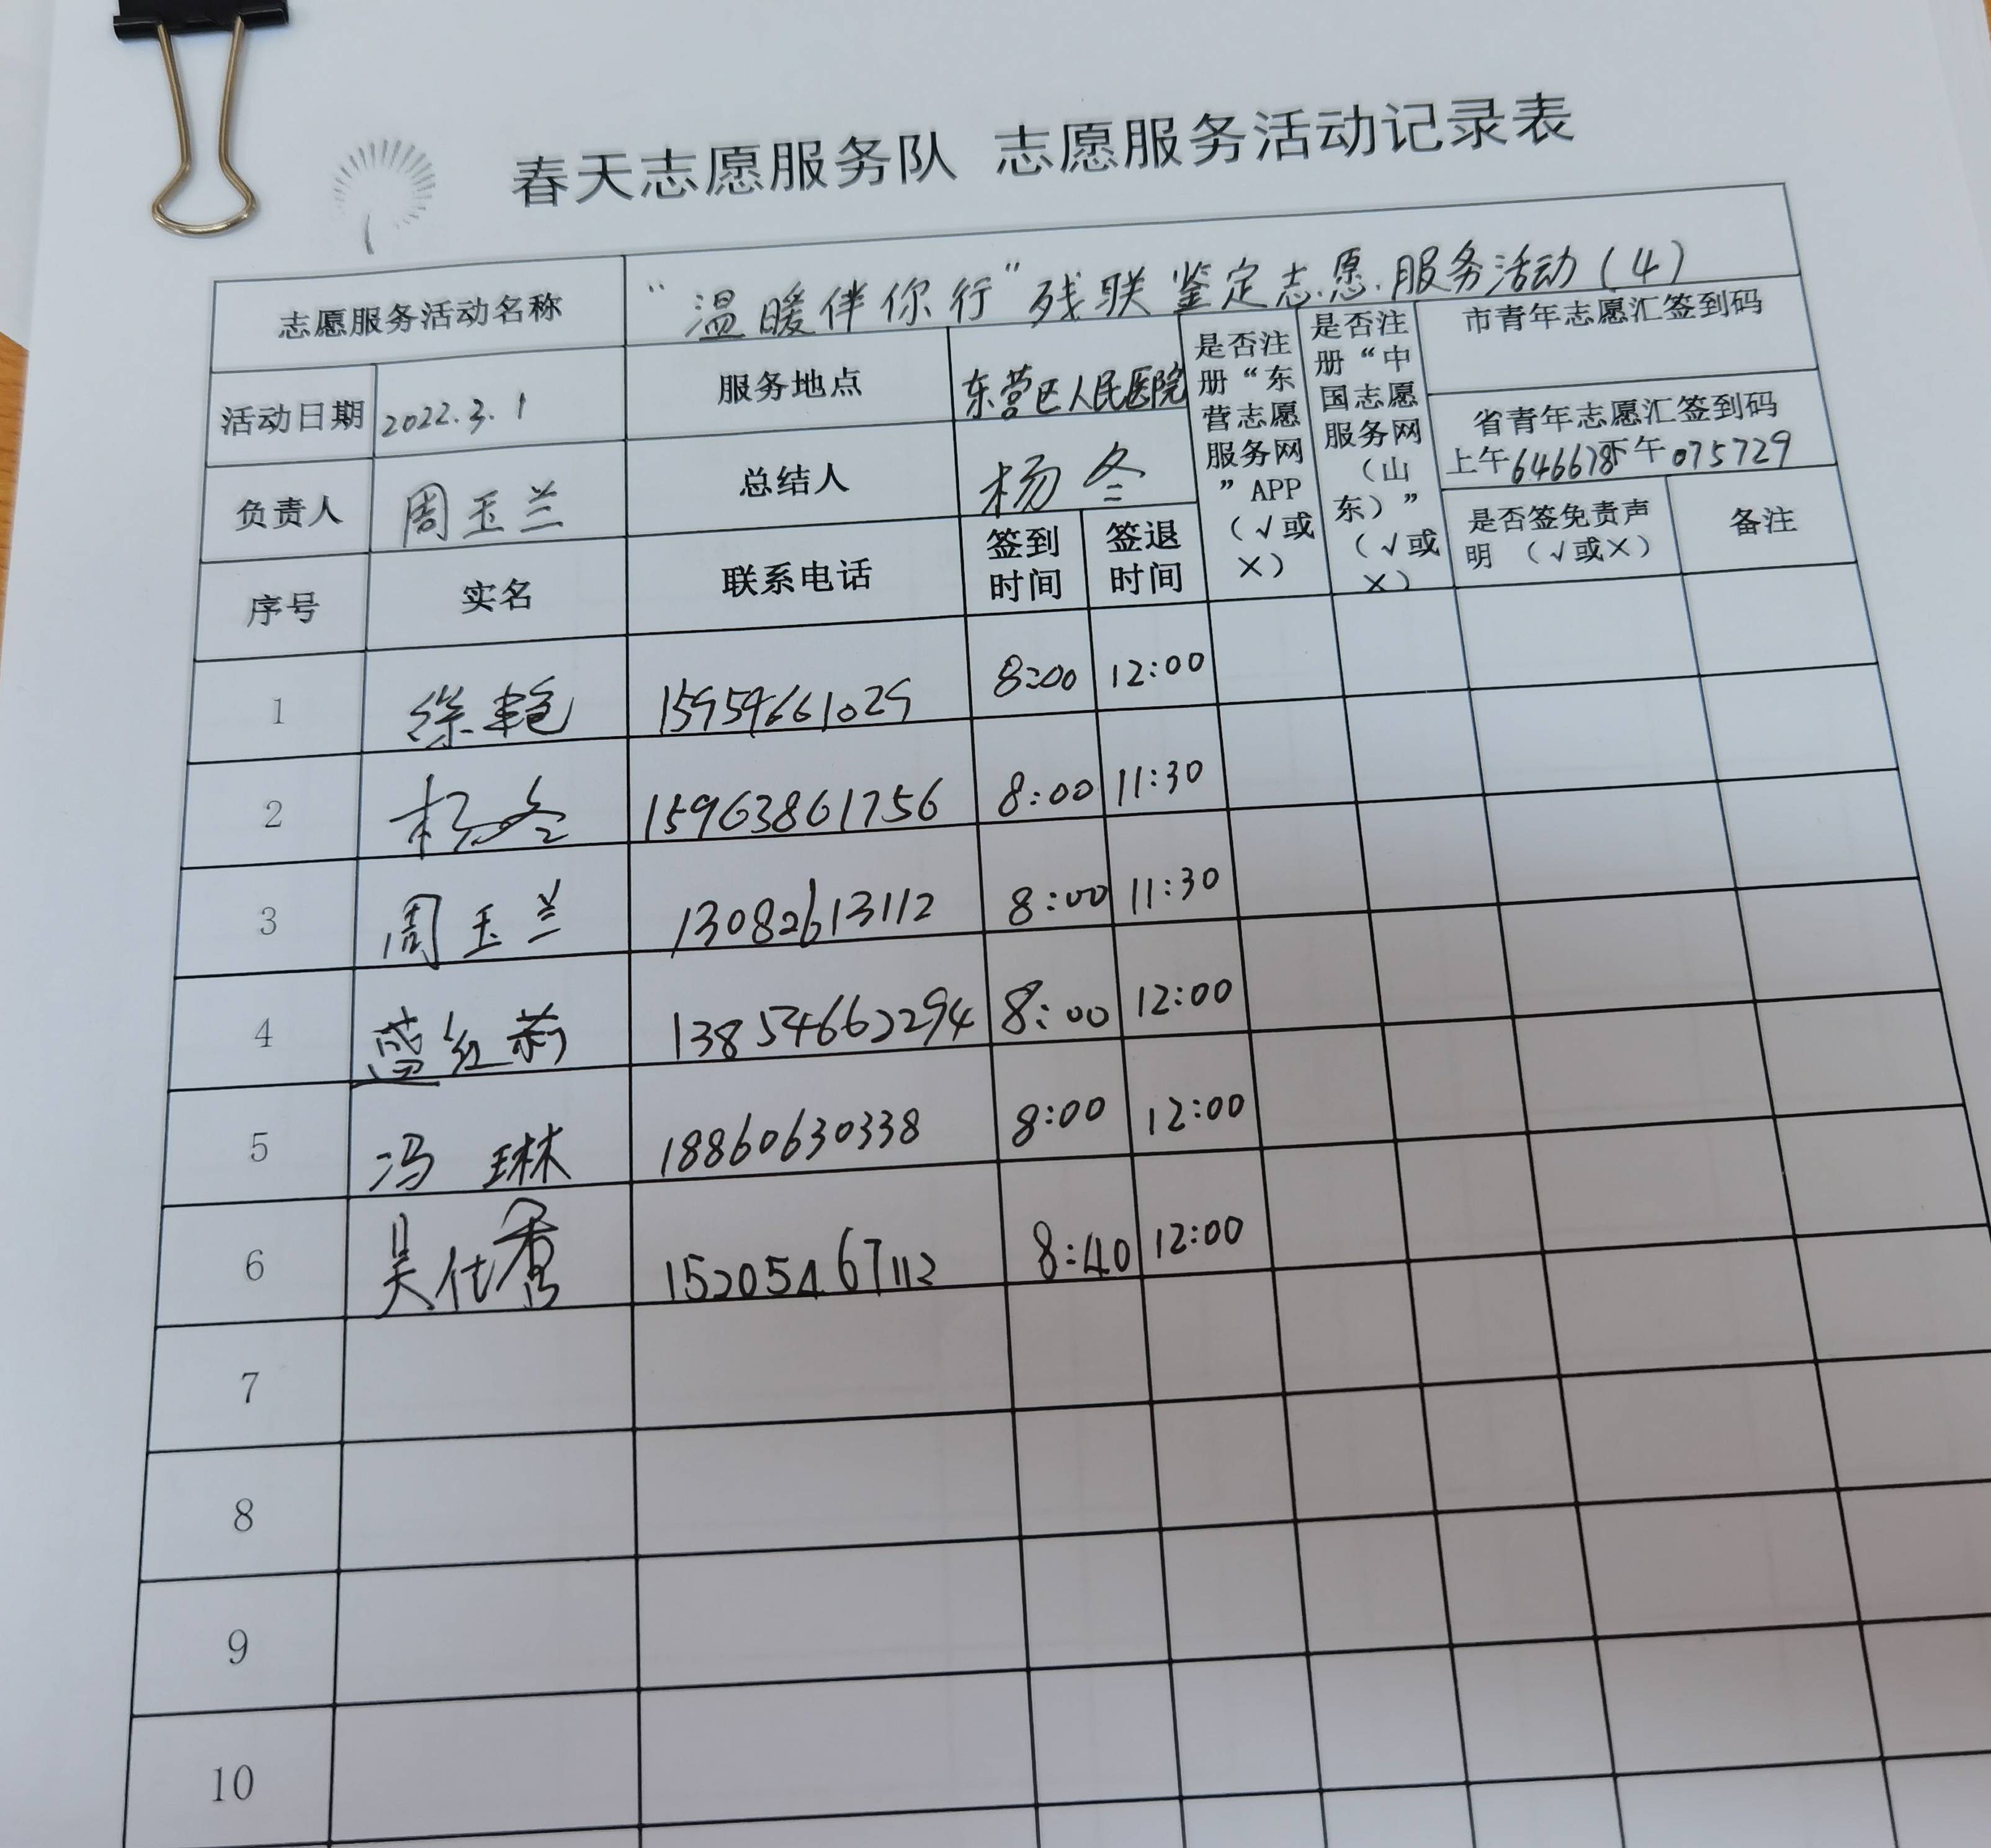 春天志愿服务队 志愿服务活动记录表
志愿服务活动名称 “温暖伴你行”残联鉴定志愿服务活动(4)
活动日期 2022.3.1 服务地点 东营区人民医院
是否注册“东营志愿服务网”APP（√或×）
是否注册“中国志愿服务网（山东）”（√或×）
市青年志愿汇签到码
省青年志愿汇签到码
上午646678下午075729
负责人 周玉兰 总结人 杨冬
是否签免责声明（√或×） 备注
序号 实名 联系电话 签到时间 签退时间
1 徐艳 15954661029 8:00 12:00
2 杨冬 15963861756 8:00 11:30
3 周玉兰 13082613112 8:00 11:30
4 红莉 13854662294 8:00 12:00
5 冯琳 18860630338 8:00 12:00
6 吴仕秀 15205467112 8:40 12:00
7
8
9
10